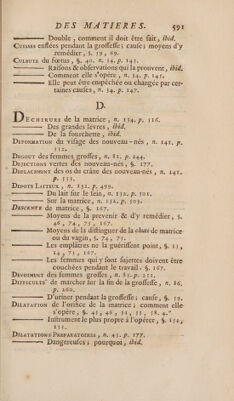 DES MATIERES. 591
—— Double, comment il doit être fait, ibid.
CUISSES enflées pendant la grossesse ; cause ; moyens d'y
remédier, §. 19, 69.
CULBUTE du fœtus, §. 40. n. 34. p. 145.
—— Raisons & observations qui la prouvent, ibid.
—— Comment elle s'opére, n. 34. p. 145.
—— Elle peut être empêchée ou changée par cer-
taines causes, n. 34. p. 147.
D.
DECHIRURE de la matrice, n. 134. p. 516.
—— Des grandes lévres, ibid.
—— De la fourchette, ibid.
DEFORMATION du visage des nouveau-nés, n. 141. p.
552.
DEGOUT des femmes grosses, n. 82. p. 244.
DEJECTIONS vertes des nouveau-nés, §. 177.
DEPLACEMENT des os du crâne des nouveau-nés, n. 141.
p. 553.
DEPOTS LAITEUX, n. 132. p. 499.
—— Du lait sur le sein, n. 132. p. 501.
—— Sur la matrice, n. 132. p. 503.
DESCENTE de matrice, §. 167.
—— Moyens de la prevenir & d'y remédier, §.
46, 74, 75, 167.
—— Moyens de la distinguer de la chute de matrice
ou du vagin, §. 74, 75.
—— Les emplâtres ne la guérissent point, §. 23,
24, 75, 167.
—— Les femmes qui y sont sujettes doivent être
couchées pendant le travail. §. 167.
DEVOIMENT des femmes grosses, n. 85. p. 251.
DIFFICULTÉS de marcher sur la fin de la grossesse, n. 86.
p. 260.
—— D'uriner pendant la grossesse ; cause, §. 59.
DILATATION de l'orifice de la matrice ; comment elle
s'opére, §. 45, 46, 52, 55, 58. 4.°
—— Instrument le plus propre à l'opérer, §. 154,
155.
DILATATIONS PREPARATOIRES, n. 45. p. 177.
—— Dangereuses ; pourquoi, ibid.